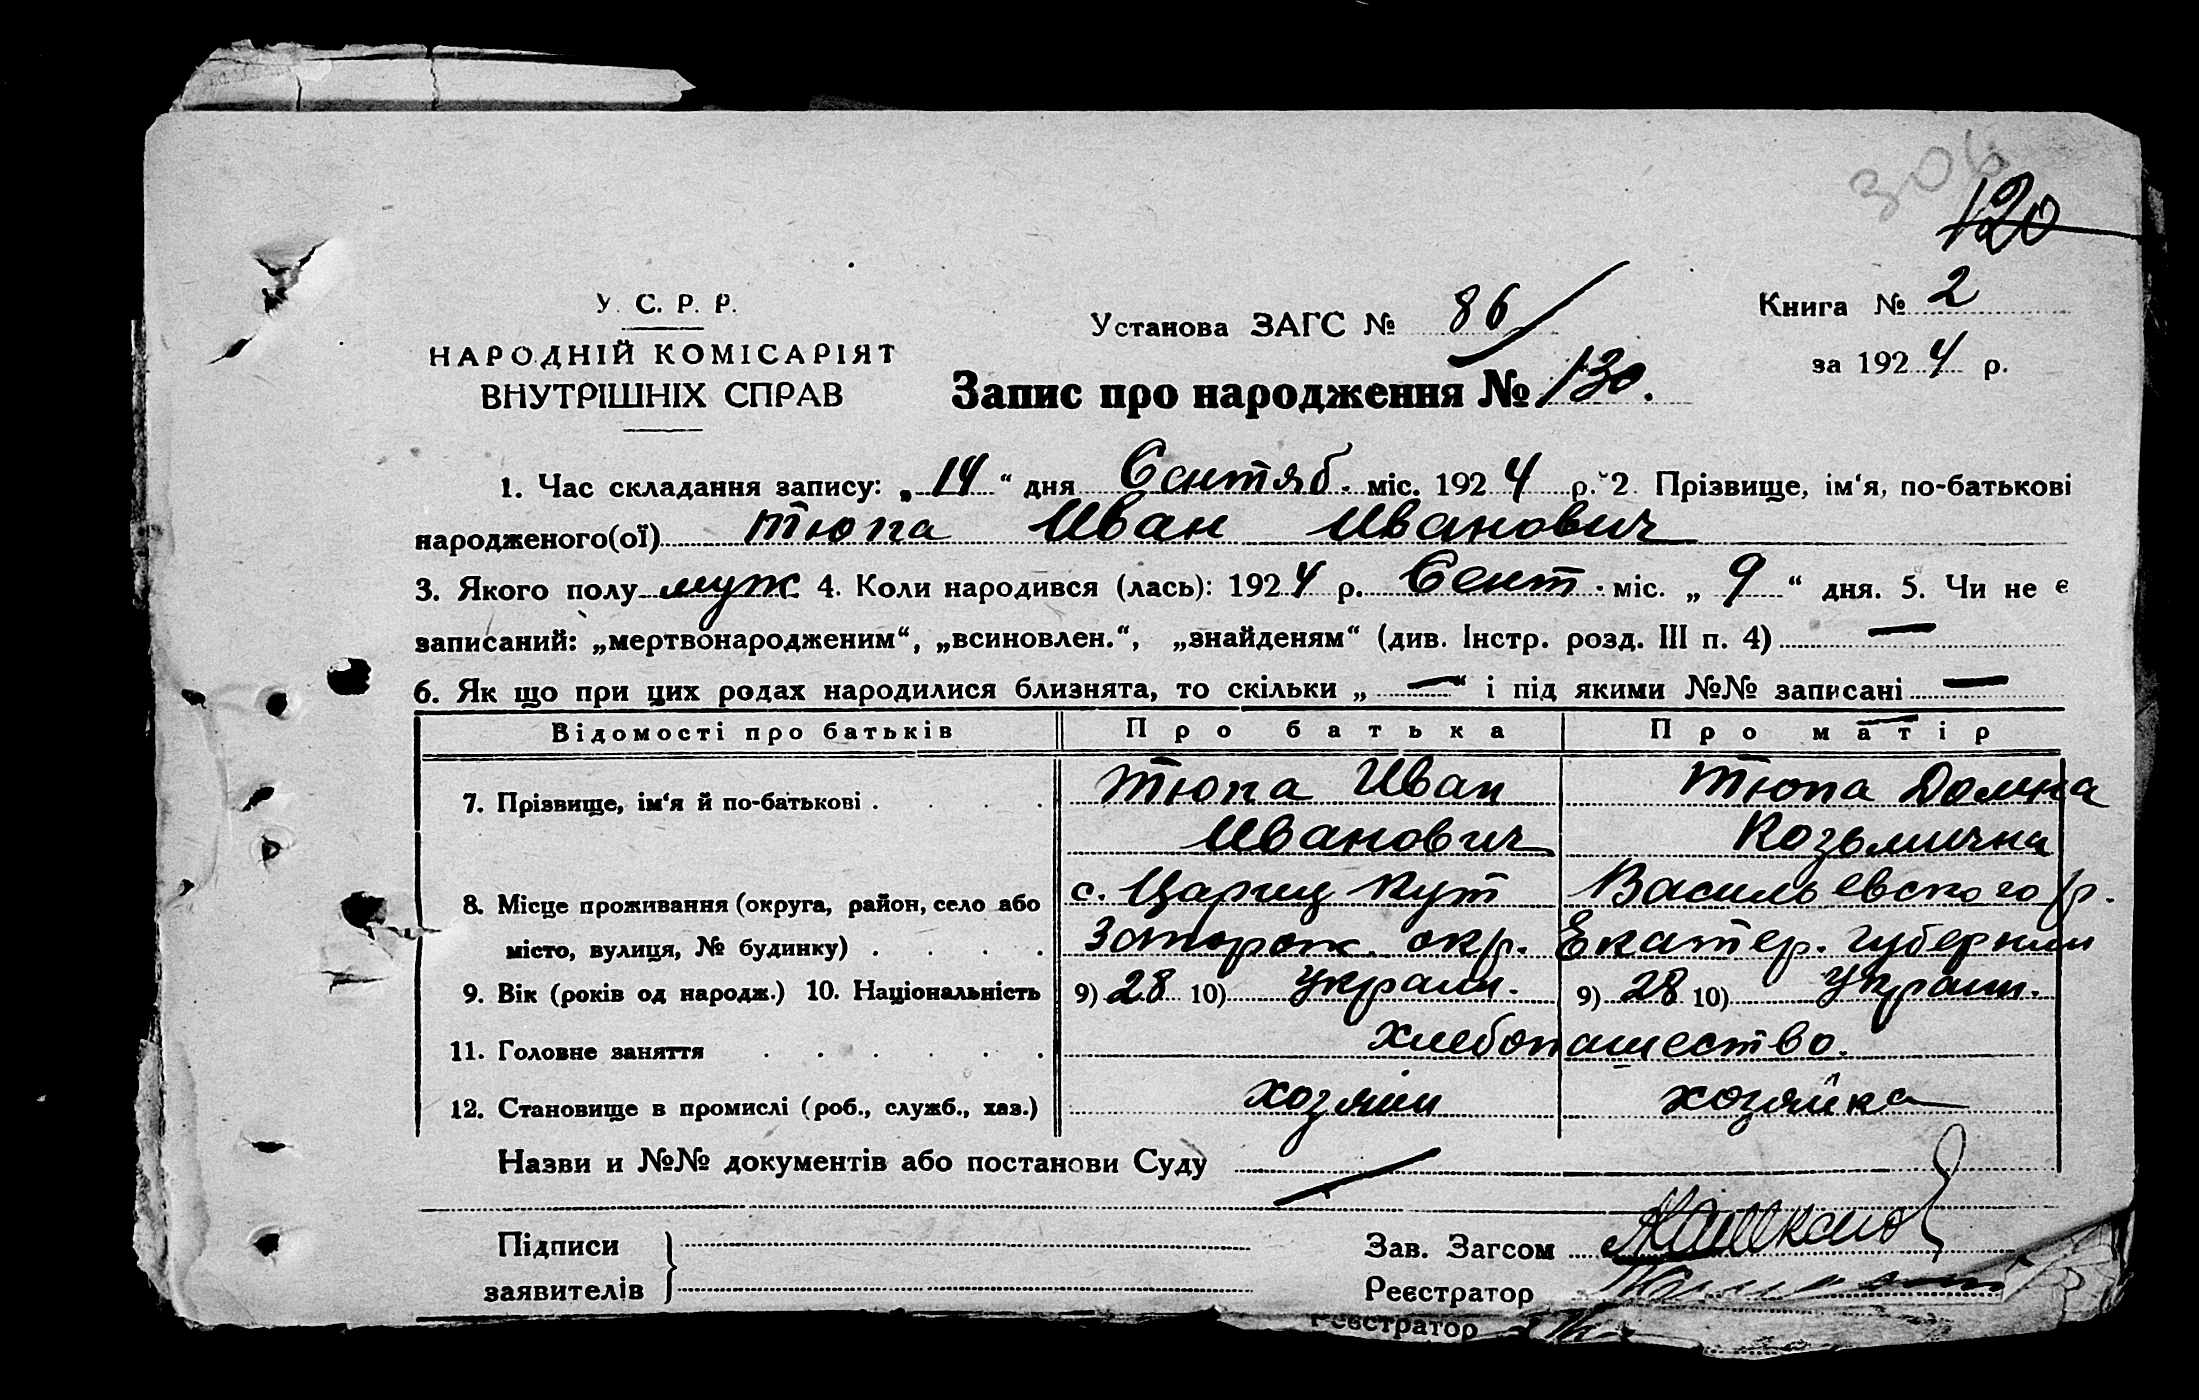 306
120
У. С. Р. Р.
НАРОДНІЙ КОМІСАРІЯТ
ВНУТРІШНІХ СПРАВ
Установа ЗАГС № 86
Книга № 2
за 1924 р.
Запис про народження № 130.
1. Час складання запису: „14“ дня Сентяб. міс. 1924 р. 2. Прізвище, ім‘я, по-батькові
народженого(ої) Тюпа Иван Иванович
3. Якого полу муж 4. Коли народився (лась): 1924 р. Сент. міс. „9“ дня. 5. Чи не є
записаний: „мертвонародженим“, „всиновлен.“, „знайденям“ (див. Інстр. розд. III п. 4) —
6. Як що при цих родах народилися близнята, то скільки „—“ і під якими №№ записані —
Відомості про батьків Про батька Про матір
7. Прізвище, ім‘я й по-батькові . . . . Тюпа Иван Тюпа Домна
Иванович Козьминична
8. Місце проживання (округа, район, село або с. Цариц Кут Васильевского р.
місто, вулиця, № будинку) . . . . Запорож. окр. Екатер. губернии
9. Вік (років од народж.) 10. Національність 9) 28 10) Украин. 9) 28 10) Украин.
11. Головне заняття . . . . . . хлебопашество.
12. Становище в промислі (роб., служб., хаз.) хозяин хозяйка
Назви и №№ документів або постанови Суду
Підписи
заявителів
Зав. Загсом
Реєстратор
Реєстратор